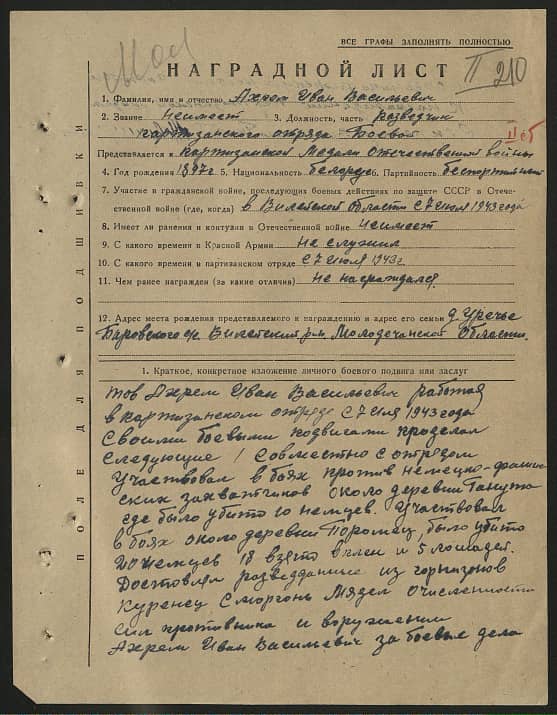 ВСЕ ГРАФЫ ЗАПОЛНЯТЬ ПОЛНОСТЬЮ
НАГРАДНОЙ ЛИСТ
II 210
1. Фамилия, имя и отчество Ахрем Иван Васильевич
2. Звание неимеет 3. Должность, часть Розведчик
партизанского отряда Боевой
Представляется к партизанской Медали Отечественой войны
4. Год рождения 1897г. 5. Национальность белорус 6. Партийность беспортийный
7. Участие в гражданской войне, последующих боевых действиях по защите СССР в Отече-
ственной войне (где, когда) в Вилейской области с 7 июля 1943 года
8. Имеет ли ранения и контузии в Отечественной войне неимеет
9. С какого времени в Красной Армии не служил
10. С какого времени в партизанском отряде с 7 июля 1943г
11. Чем ранее награжден (за какие отличия) не награждался.
12. Адрес места рождения представляемого к награждению и адрес его семьи д. Уречье
с/с Вилейский р-н. Молодечанской области.
1. Краткое, конкретное изложение личного боевого подвига или заслуг
тов Ахрем Иван Васильевич работая
в партизанском отряде с 7 июля 1943 года
Своими боевыми подвигами проделал
следующие / Совместно с отрядом
Участвовал в боях против немецко-фашис
ских захватчиков около деревни
где было убито 10 немцев. Участвовал
в боях около деревни было убито
немцев 18 взято в плен и 5 лошадей.
Доставлял разведданные из горнизонов
Куренец Сморгонь Мядел о численности
сил противника и воружении
Ахрем Иван Васильевич за боевые дела
ПОЛЕ ДЛЯ ПОДШИВКИ